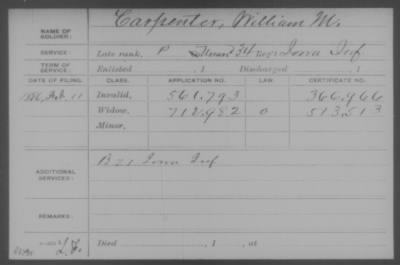 Carpenter, William M.
NAME OF SOLDIER:
SERVICE: Late rank, P 34 Reg't Iowa Inf
TERM OF SERVICE: Enlisted , 1 Discharged , 1
DATE OF FILING. CLASS. APPLICATION NO. LAW. CERTIFICATE NO.
1886, Feb. 11 Invalid, 561,793 366,966
Widow, 712,982 O 513,513
Minor,
ADDITIONAL SERVICES: B 21 Iowa Inf
REMARKS:
Died , 1 , at